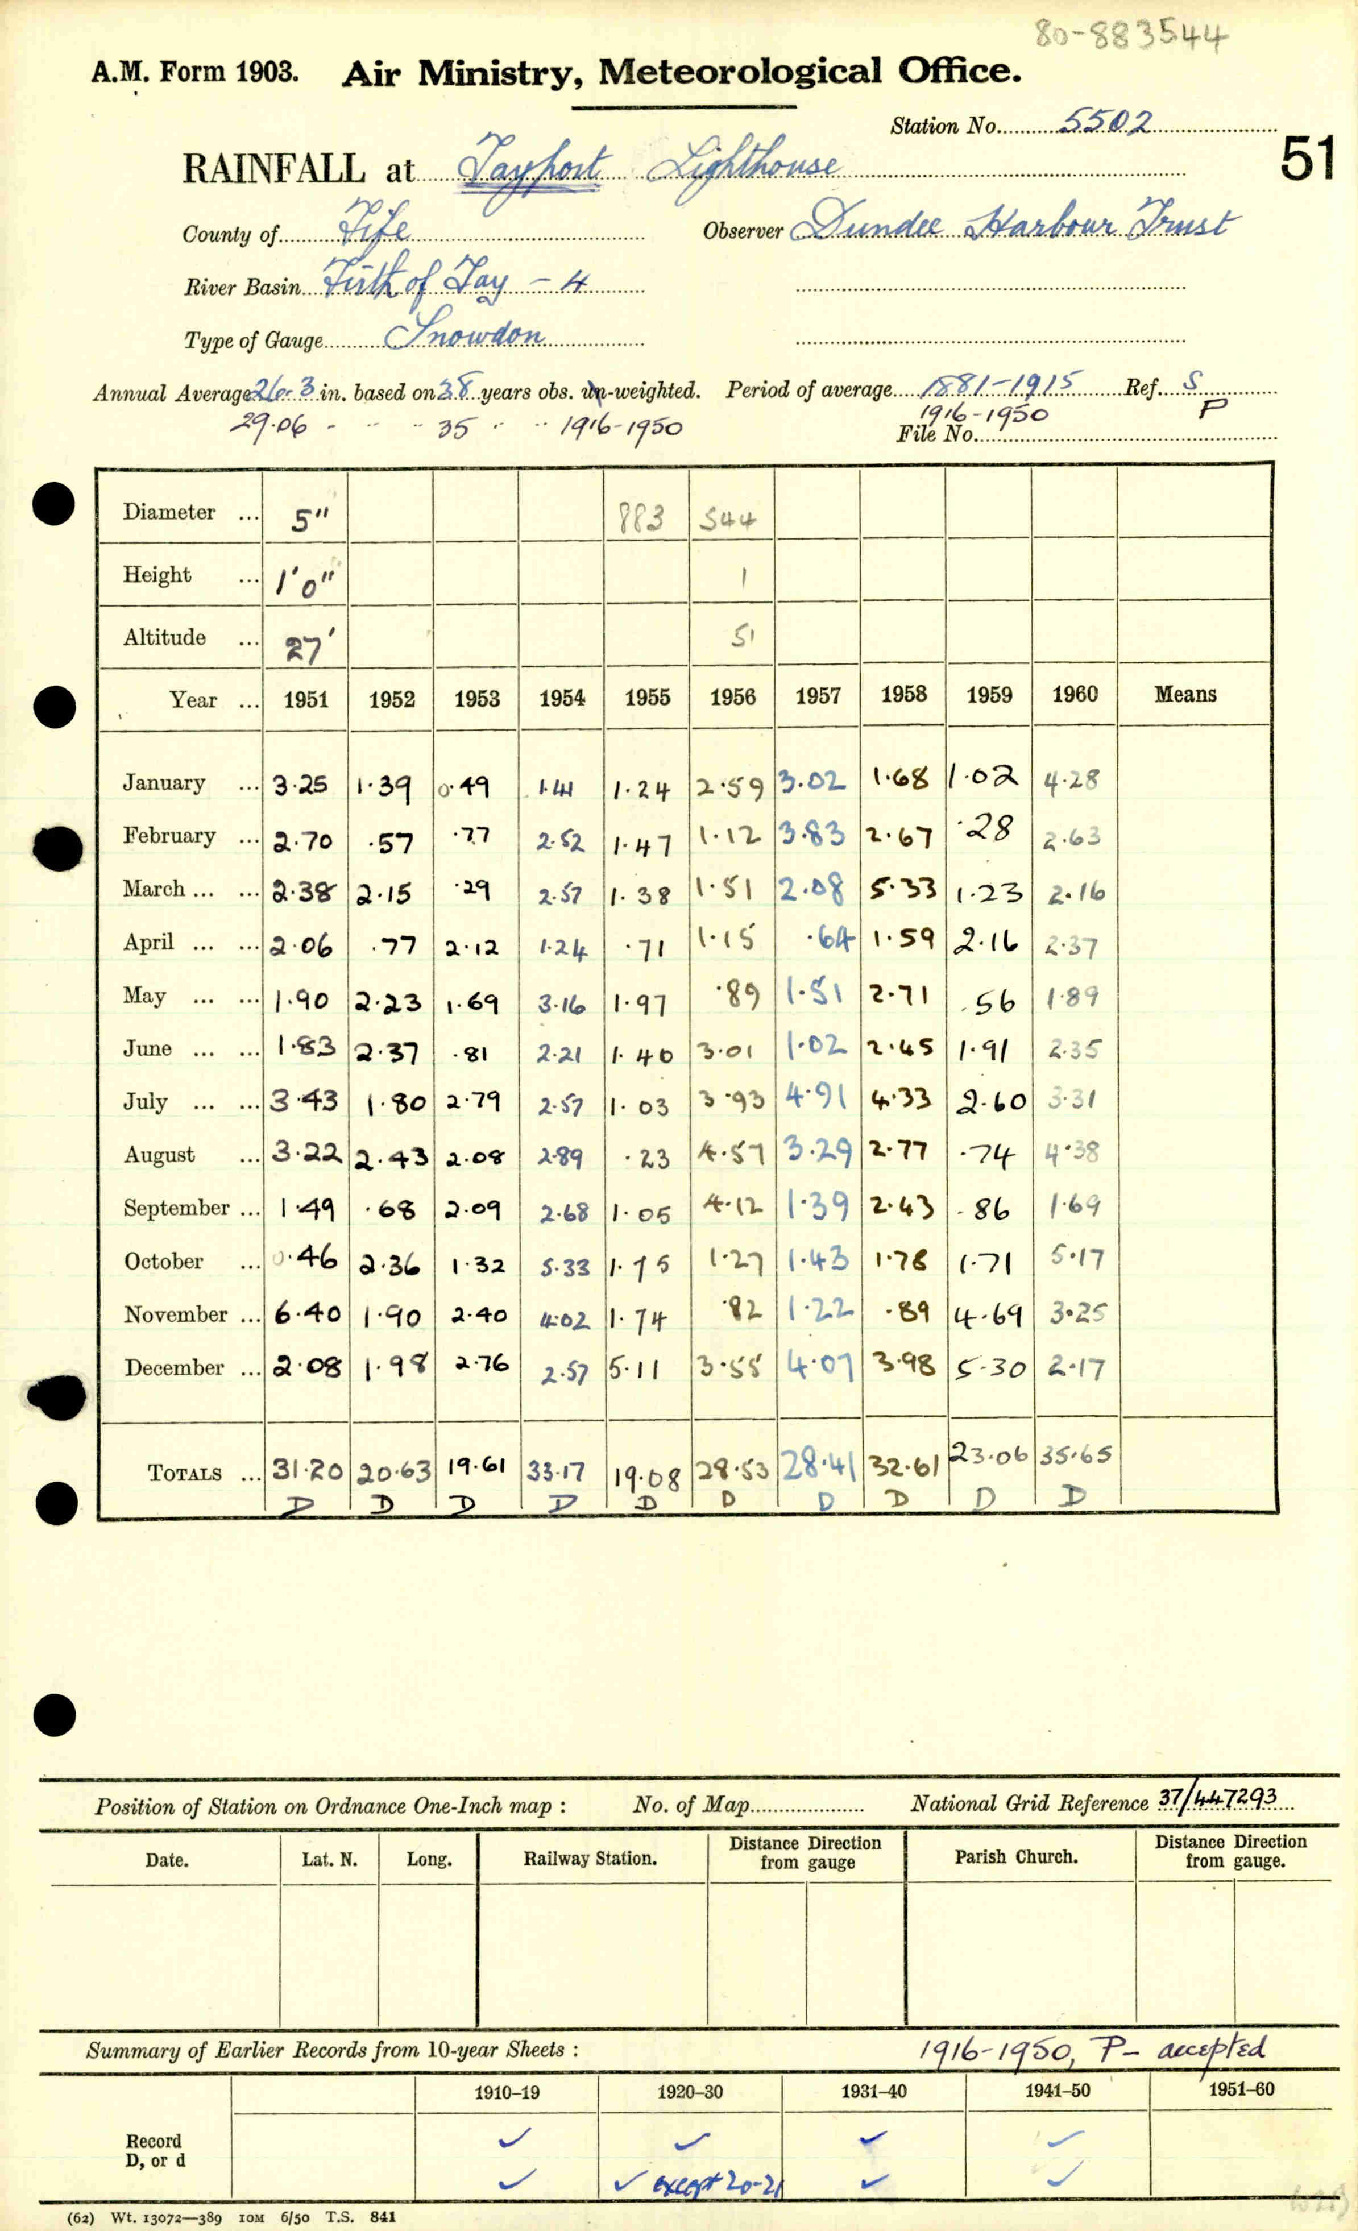 80-883544
A.M. Form 1903. Air Ministry, Meteorological Office.
Station No. 5502
51
RAINFALL at Tayport Lighthouse
County of Fife Observer Dundee Harbour Trust
River Basin Firth of Tay - 4
Type of Gauge Snowdon
Annual Average 26.3 in. based on 38 years obs. un-weighted. Period of average 1881-1915 Ref. S
29.06 - - - 35 " " 1916-1950 1916-1950 P
File No.
Diameter ... 5" 883 544
Height ... 1'0" 1
Altitude ... 27' 51
Year ... 1951 1952 1953 1954 1955 1956 1957 1958 1959 1960 Means
January ... 3.25 1.39 0.49 1.41 1.24 2.59 3.02 1.68 1.02 4.28
February ... 2.70 .57 .77 2.52 1.47 1.12 3.83 2.67 .28 2.63
March ... ... 2.38 2.15 .29 2.57 1.38 1.51 2.08 5.33 1.23 2.16
April ... ... 2.06 .77 2.12 1.24 .71 1.15 .64 1.59 2.16 2.37
May ... ... 1.90 2.23 1.69 3.16 1.97 .89 1.51 2.71 .56 1.89
June ... ... 1.83 2.37 .81 2.21 1.40 3.01 1.02 2.45 1.91 2.35
July ... ... 3.43 1.80 2.79 2.57 1.03 3.93 4.91 4.33 2.60 3.31
August ... 3.22 2.43 2.08 2.89 .23 4.57 3.29 2.77 .74 4.38
September ... 1.49 .68 2.09 2.68 1.05 4.12 1.39 2.43 .86 1.69
October ... 0.46 2.36 1.32 5.33 1.75 1.27 1.43 1.78 1.71 5.17
November ... 6.40 1.90 2.40 4.02 1.74 .82 1.22 .89 4.69 3.25
December ... 2.08 1.98 2.76 2.57 5.11 3.55 4.07 3.98 5.30 2.17
TOTALS ... 31.20 20.63 19.61 33.17 19.08 28.53 28.41 32.61 23.06 35.65
D D D D D D D D D D
Position of Station on Ordnance One-Inch map : No. of Map National Grid Reference 37/447293
Date. Lat. N. Long. Railway Station. Distance Direction from gauge Parish Church. Distance Direction from gauge.
Summary of Earlier Records from 10-year Sheets : 1916-1950, P- accepted
1910-19 1920-30 1931-40 1941-50 1951-60
Record ✓ ✓ ✓ ✓
D, or d ✓ ✓ except 20-21 ✓ ✓
(62) Wt. 13072—389 10M 6/50 T.S. 841